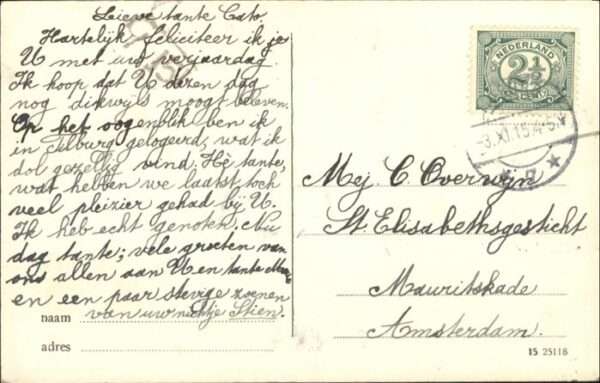 Lieve tante Cato.
Hartelijk feliciteer ik je
U met uw verjaardag
Ik hoop dat U dezen dag
nog dikwijls moogt beleven.
Op het oogenblik ben ik
in Tilburg gelogeerd, wat ik
dol gezellig vind. Hè tante,
wat hebben we laatst toch
veel pleizier gehad bij U.
Ik heb echt genoten. Nu
dag tante; vele groeten van
ons allen aan U en tante
en een paar stevige zoenen
van uw nichtje Stien.
naam
adres
NEDERLAND
2½
CENT
-3.XI.15.4-5N
Mej. C. Overwijn
St. Elisabethsgesticht
Mauritskade
Amsterdam.
15 25118